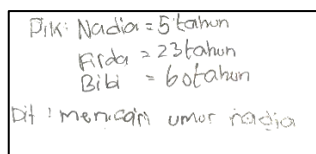 Dik: Nadia = 5 tahun
Firda = 23 tahun
Bibi = 60 tahun
Dit : mencari umur nadia